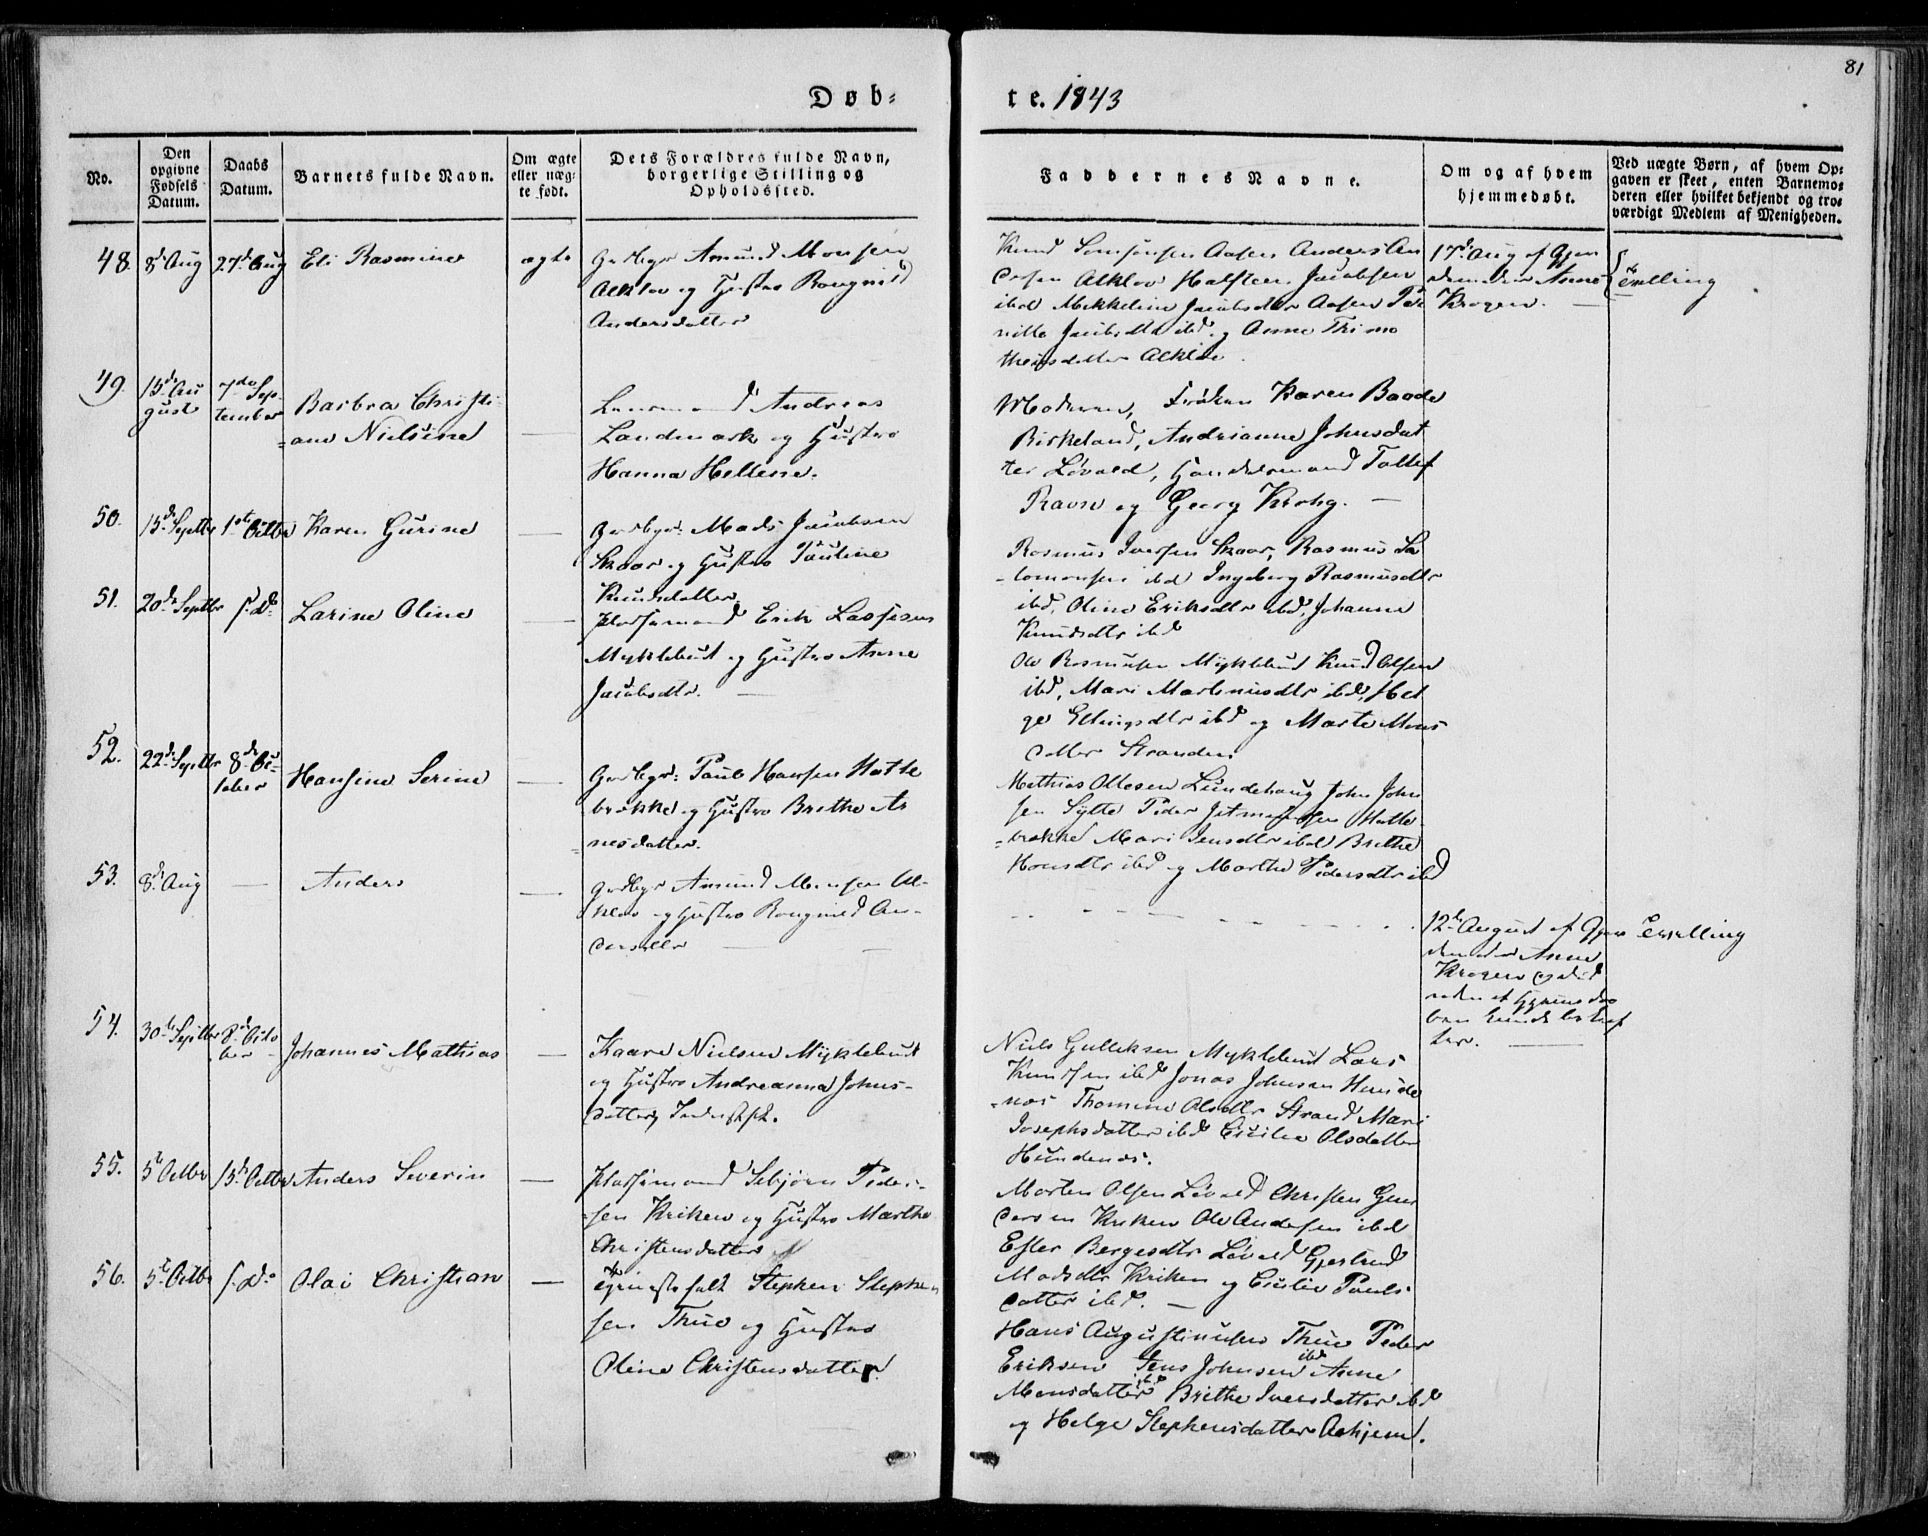 81
Døb-
te. 1843
No.
Den opgivne Fødsels Datum.
Daabs Datum.
Barnets fulde Navn.
Om ægte eller uægte født.
Dets Forældres fulde Navn, borgerlige Stilling og Opholdssted.
Faddernes Navne.
Om og af hvem hjemmedøbt.
Ved uægte Børn, af hvem Opgaven er skeet, enten Barnemoderen eller hvilket bekjendt og troværdigt Medlem af Menigheden.
48. 8de Aug 27de Aug Eli Rasmine ægte
Gdbgr Amund Monsen
Alklov og Hustro Rangnild
Andersdatter
Knud Aasen Anders An
dersen Alklov Halsteen Jacobsen
ibd Mikkeline Jacobsdtr Aasen Per
nille Jacobsdtr ibd og Anne Thimo
theusdatter Alklov
17de Aug af Gjor
demoder Anne
Krogen. Tvilling
49. 15de Au
gust
7de Sep
tember
Barbra Christi
ane Nielsine
Lensmand Andreas
Landmark og Hustro
Hanna Hellene.
Moderen, Frøken Karen Baade
Birkeland, Andrianne Johnsdat
ter Løvold, Handelsmand Tollef
Ravn og Georg Krohg.
50. 15de Septbr 1ste Octbr Karen Gurine
Gdbgr: Mads Jacobsen
Skaar og Hustro Pauline
Knudsdatter.
Rasmus Iversen Skaar, Rasmus Sa
lomonsen ibd Ingeborg Rasmusdtr
ibd, Oline Eriksdtr ibd, Johanne
Knudsdtr ibd
51. 20de Septbr s. D. Larine Oline
Pladsemand Erik Lassesen
Myklebust og Hustro Anne
Jacobsdtr.
Ole Rasmusen Myklebust Knud Olsen
ibd, Mari Martinusdtr ibd, Hel
ge Ellingsdtr ibd og Marte Mons
datter Stranden
52. 22de Septbr 8de Oc
tober
Hansine Serine
Gdbgr: Paul Hansen Hatle
brekke og Hustro Brithe Ar
nesdatter.
Mathias Ollesen Lundehaug John John
sen Sylte Peder Hatle
brekke Mari Jensdtr ibd Brithe
Hansdtr ibd og Marthe Pedersdtr ibd
53. 8de Aug Anders
Gdbgr Amund Monsen Al-
klov og Hustro Rangnild An-
dersdtr
12te August af Gjor
demoder Anne
Krogen og død
Tvilling
54. 30te Septbr 8de Octo
ber
Johannes Mathias
Kaare Nielsen Myklebust
og Hustro Andreanna Johns-
datter, Inderstfk.
Niels Gulleksen Myklebust Lars
Knudsen ibd Jonas Johnsen Hunde
næs Thomine Olsdtr Strand Mari
Josephsdatter ibd Cicilie Olsdatter
Hundenæs.
55. 5te Octbr 15de Octbr Anders Severin
Pladsemand Sebjørn Peder-
sen Kriken og Hustro Marthe
Christensdatter
Morten Olsen Løvold Christen Gun
dersen Kriken Ole Andersen ibd
Ester Bergesdtr Løvold Gjertrud
Madsdtr Kriken og Cicilie Pauls
datter ibd.
56. 5te Octbr s. D. Olai Christian
Stephen Stephen
sen Thue og Hustro
Oline Christensdatter.
Hans Augustinusen Thue Peder
Eriksen ibd Jens Johnsen Anne
Monsdatter ibd Brithe Iversdatter ibd
og Helge Stephensdatter Aahjem.